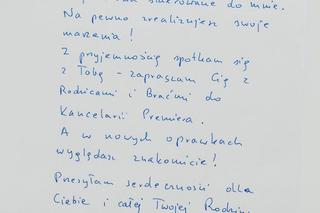 skierowane do mnie.
Na pewno zrealizujesz swoje
marzenia!
Z przyjemnością spotkam się
z Tobą - zapraszam Cię z
Rodzicami i Braćmi do
Kancelarii Premiera.
A w nowych oprawkach
wyglądasz znakomicie!
Przesyłam serdeczności dla
Ciebie i całej Twojej Rodziny